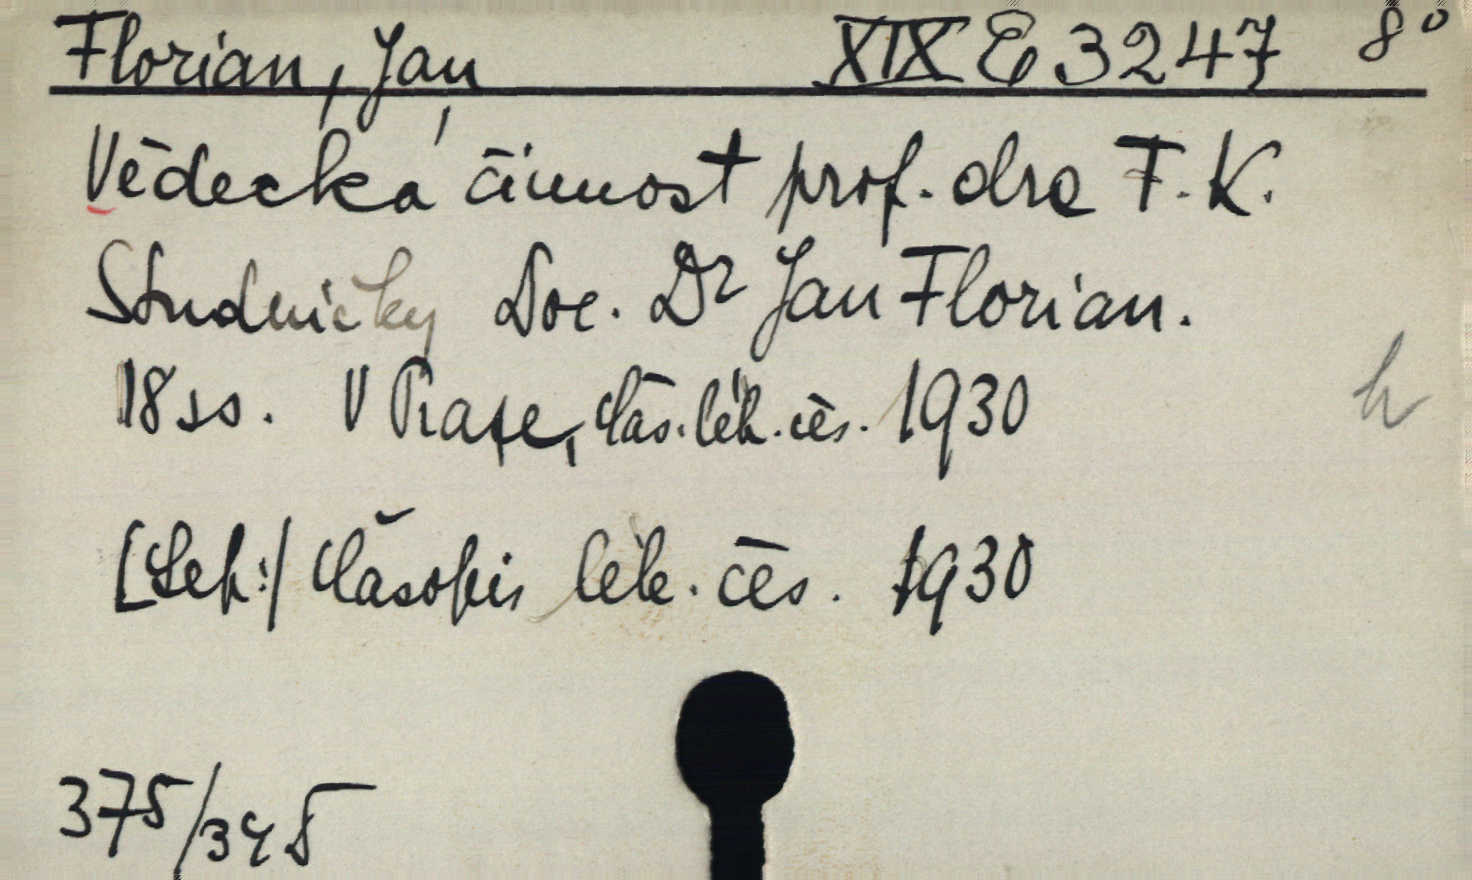 Florian, Jan XIX E 3247 8°
Vědecká činnost prof. dra F. K.
Studničky Doc. Dr Jan Florian.
18 ss. V Praze, Čas. lék. čes. 1930
h
[Sep:] Časopis lék. čes. 1930
375/345